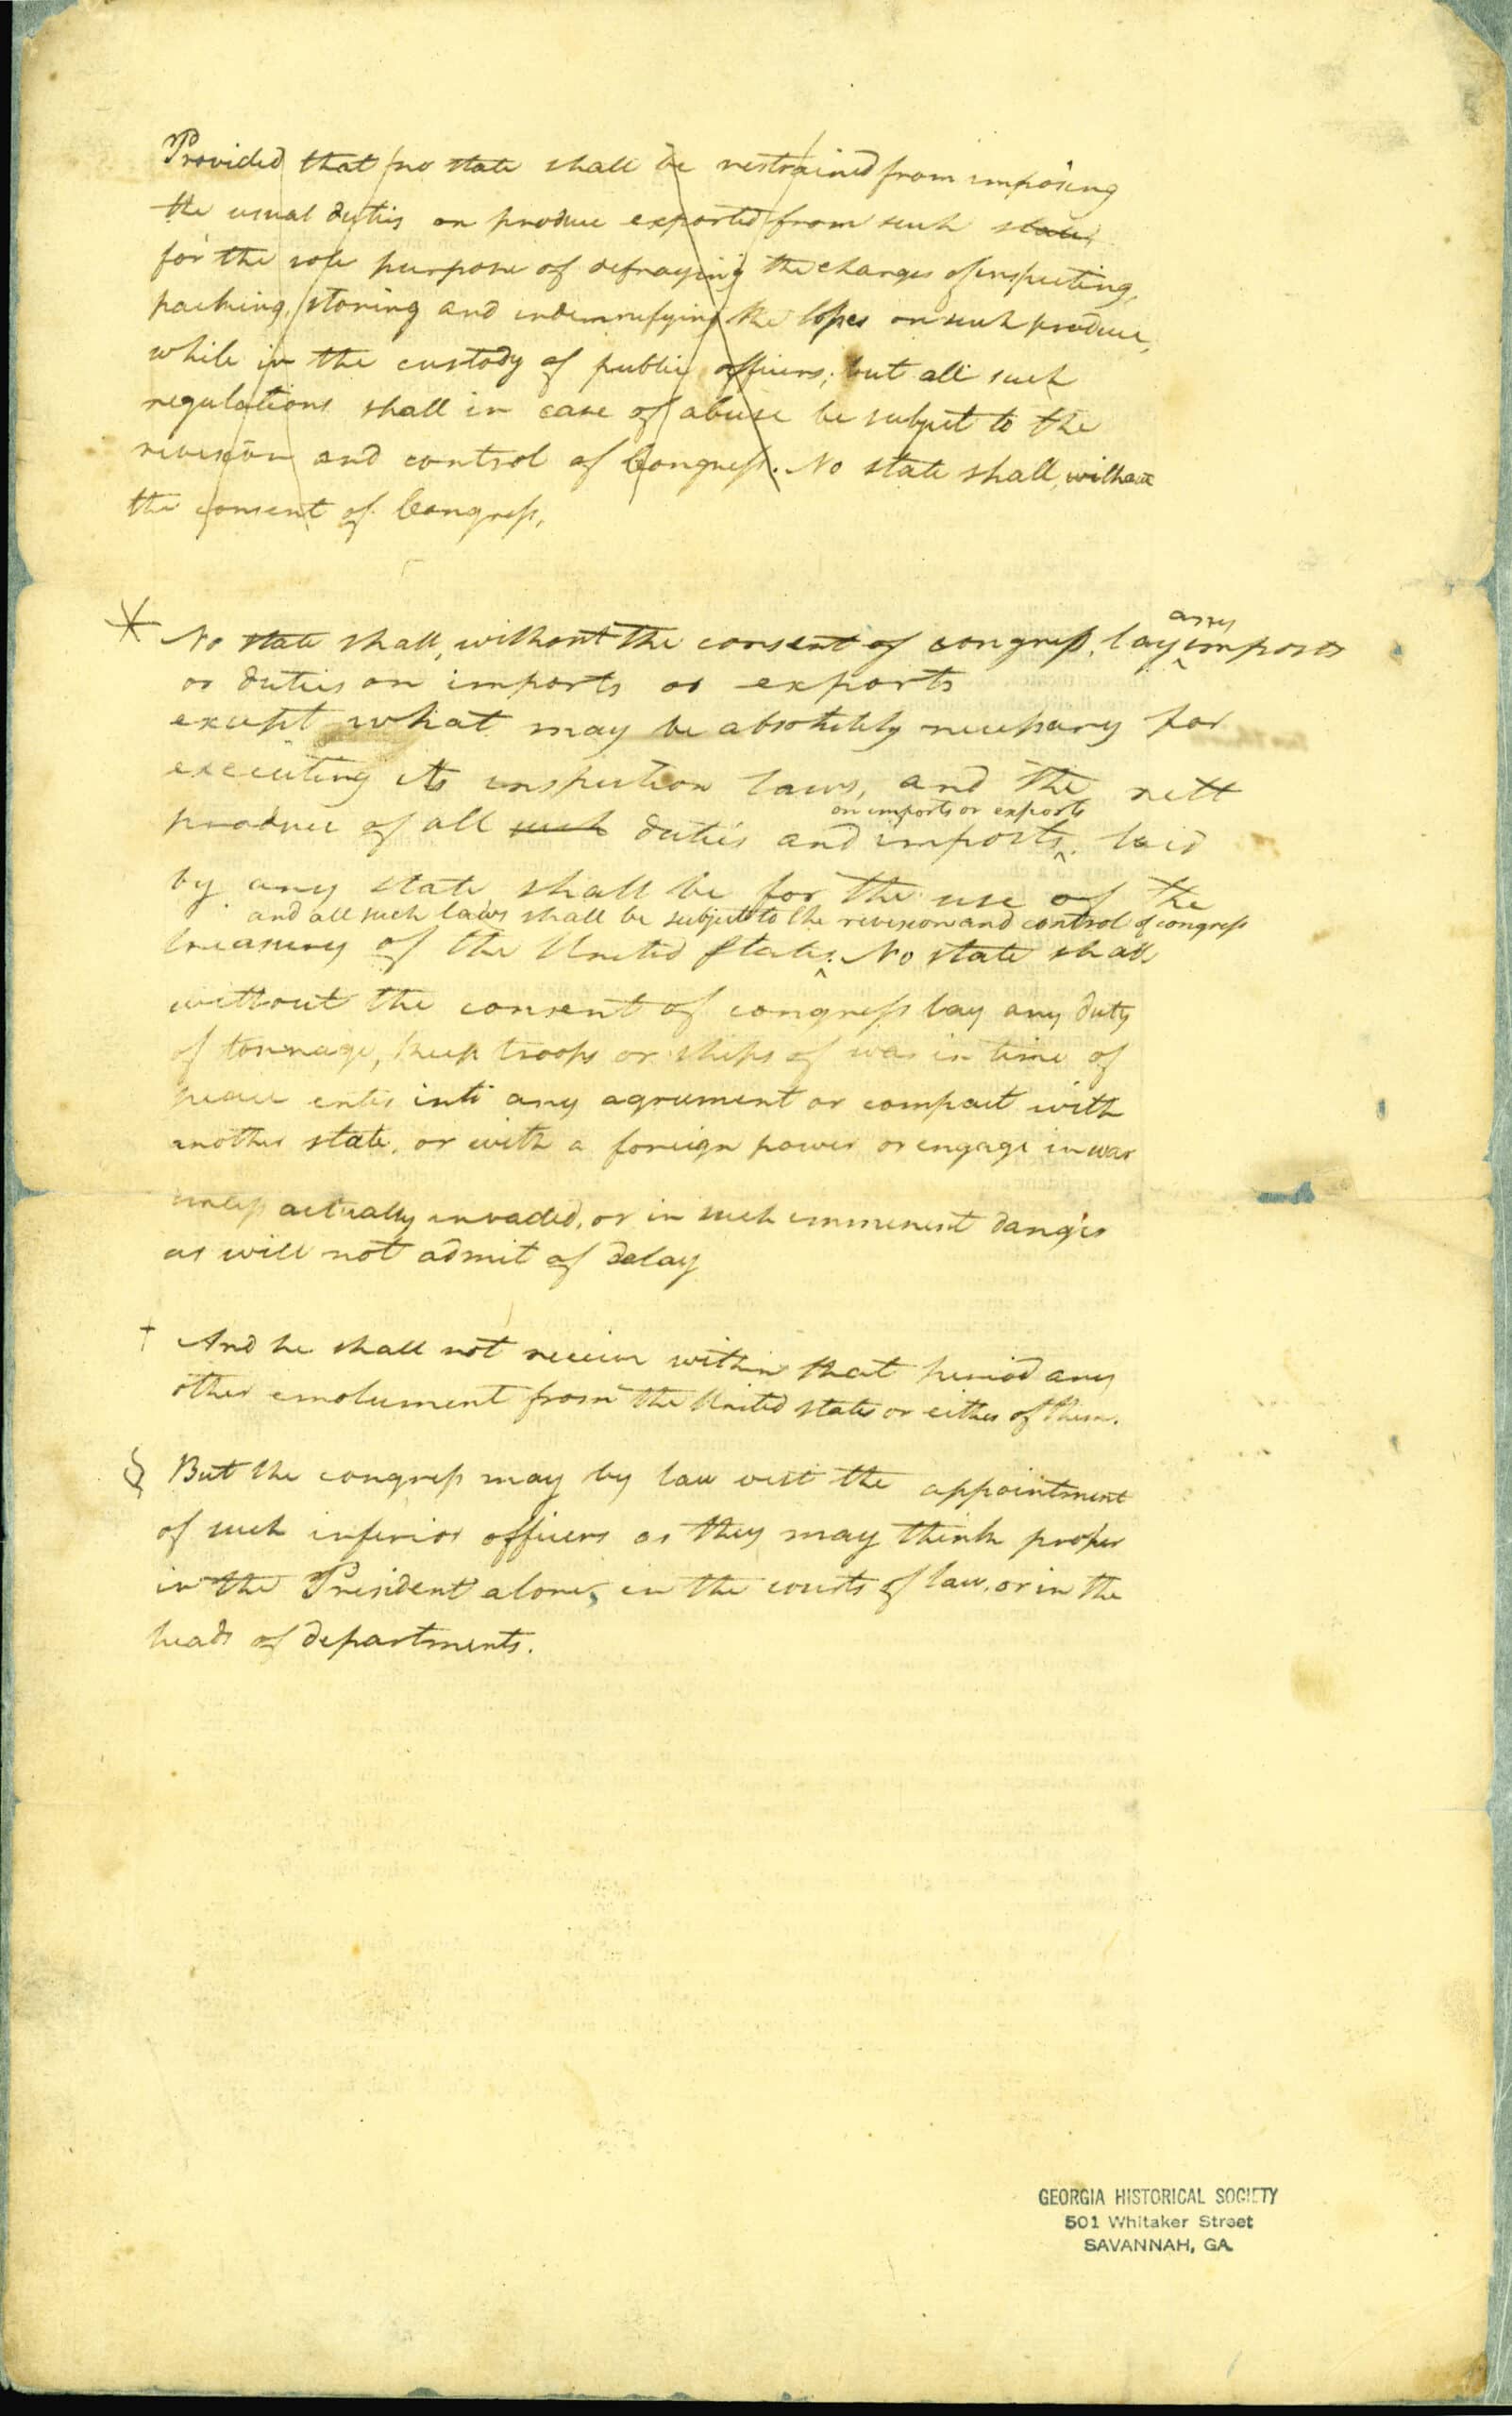 Provided that no state shall be restrained from imposing
the usual duties on produce exported from such state
for the sole purpose of defraying the charges of inspecting,
packing, storing and indemnifying the losses on such produce,
while in the custody of public officers; but all such
regulations shall in case of abuse be subject to the
revision and control of Congress. No state shall, without
the consent of Congress,
any
* No state shall, without the consent of congress, lay ^ imposts
or duties on imports or exports
except what may be absolutely necessary for
executing its inspection laws, and the nett
on imports or exports
produce of all such duties and imposts ^, laid
by any state shall be for the use of the
and all such laws shall be subject to the revision and control of congress
treasury of the United States ^. No state shall
without the consent of congress lay any duty
of tonnage, keep troops or ships of war in time of
peace enter into any agreement or compact with
another state, or with a foreign power or engage in war
unless actually invaded, or in such imminent danger
as will not admit of delay
† And he shall not receive within that period any
other emolument from the United states or either of them.
§ But the congress may by law vest the appointment
of such inferior officers as they may think proper
in the President alone, in the courts of law, or in the
heads of departments.
GEORGIA HISTORICAL SOCIETY
501 Whitaker Street
SAVANNAH, GA.